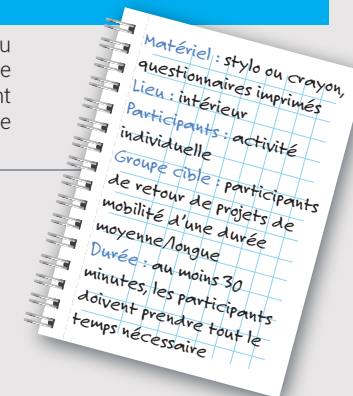 u
e
nt
e
Matériel : stylo ou crayon,
questionnaires imprimés
Lieu : intérieur
Participants : activité
individuelle
Groupe cible : participants
de retour de projets de
mobilité d'une durée
moyenne/longue
Durée : au moins 30
minutes, les participants
doivent prendre tout le
temps nécessaire